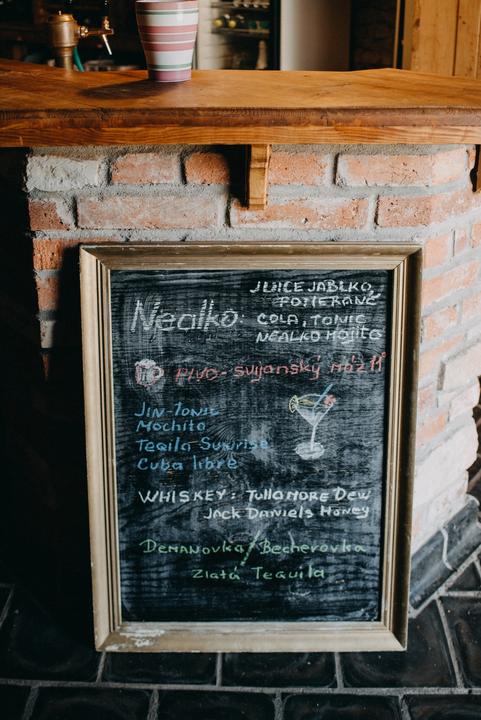 JUICE JABLKO,
POMERANČ
Nealko: COLA, TONIC
NEALKO Mojito
PIVO - Svijanský MÁZ 11°
JIN-TONIC
Mochito
Teqila Sunrise
Cuba libre
WHISKEY: TULLAMORE DEW
Jack Daniels Honey
Demanovka/Becherovka
Zlatá Tequila